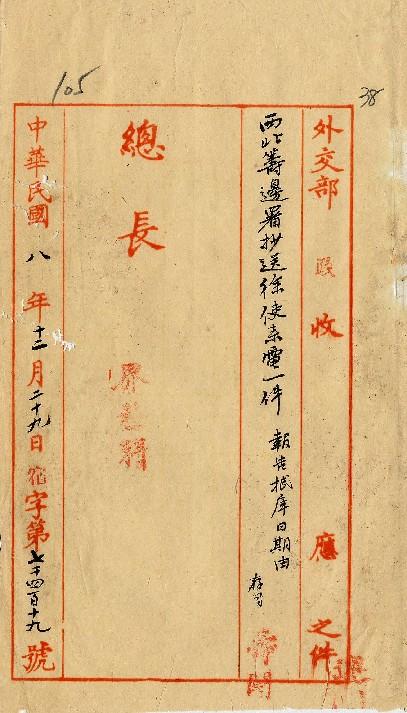 105
38
外交部 收 應 之件
西北籌邊署抄送徐使來電一件 報告抵庫日期由
總長
中華民國八年十二月二十九日宿字第七千四百十九號